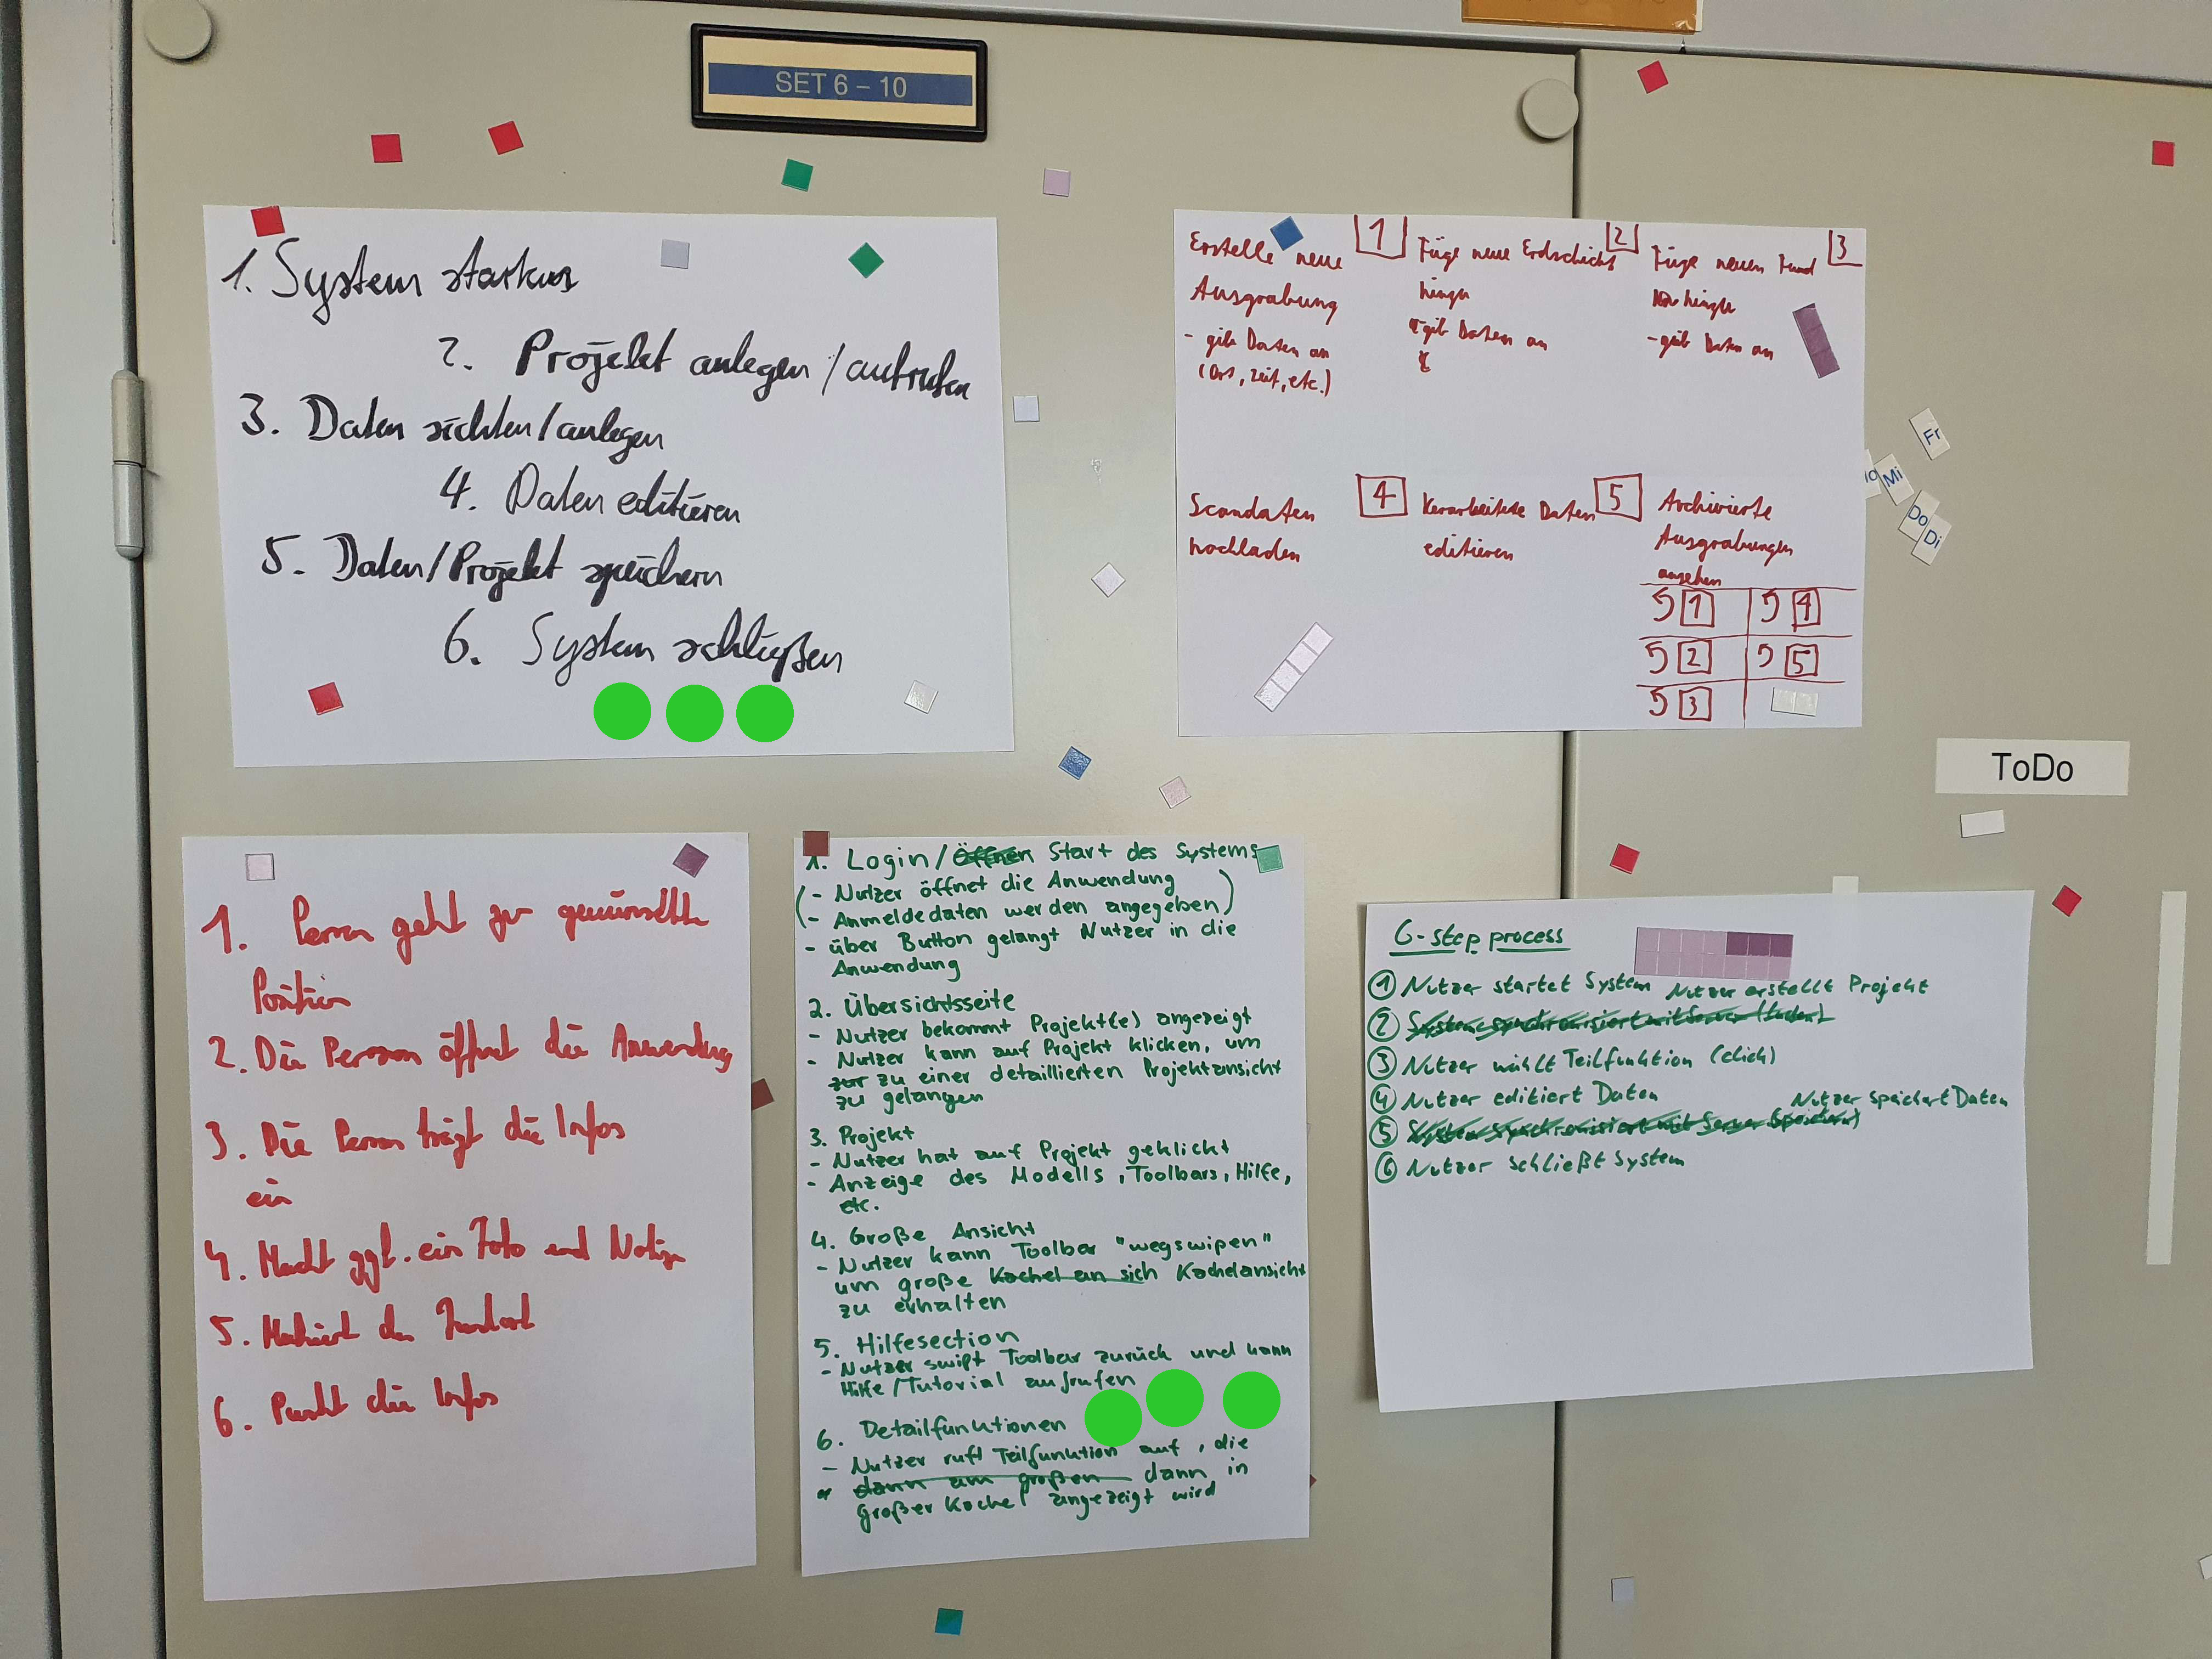 SET 6 – 10
1. System starten
2. Projekt anlegen/aufrufen
3. Daten sichten/anlegen
4. Daten editieren
5. Daten/Projekt speichern
6. System schließen
Erstelle neue
Ausgrabung
- gib Daten an
(Ort, Zeit, etc.)
1
Füge neue Erdschicht
hinzu
- gib Daten an
2
Füge neuen Fund
hinzu
- gib Daten an
3
Scandaten
hochladen
4
Verarbeitete Daten
editieren
5
Archivierte
Ausgrabungen
ansehen
1 4
2 5
3
Fr
Mi
Do
Di
ToDo
1. Person geht zur gewünschten
Position
2. Die Person öffnet die Anwendung
3. Die Person trägt die Infos
ein
4. Macht ggf. ein Foto und Notizen
5. Markiert den Fundort
6. Pusht die Infos
1. Login/Öffnen Start des Systems
(- Nutzer öffnet die Anwendung
- Anmeldedaten werden angegeben)
- über Button gelangt Nutzer in die
Anwendung
2. Übersichtsseite
- Nutzer bekommt Projekt(e) angezeigt
- Nutzer kann auf Projekt klicken, um
zur zu einer detaillierten Projektansicht
zu gelangen
3. Projekt
- Nutzer hat auf Projekt geklickt
- Anzeige des Modells, Toolbars, Hilfe,
etc.
4. Große Ansicht
- Nutzer kann Toolbar "wegswipen"
um große Kachel an sich Kachelansicht
zu erhalten
5. Hilfesection
- Nutzer swipt Toolbar zurück und kann
Hilfe/Tutorial aufrufen
6. Detailfunktionen
- Nutzer ruft Teilfunktion auf, die
dann am großen dann in
großer Kachel angezeigt wird
6-step process
1 Nutzer startet System
Nutzer erstellt Projekt
2 System synchronisiert mit Server (laden)
3 Nutzer wählt Teilfunktion (click)
4 Nutzer editiert Daten
Nutzer speichert Daten
5 System synchronisiert mit Server (speichern)
6 Nutzer schließt System